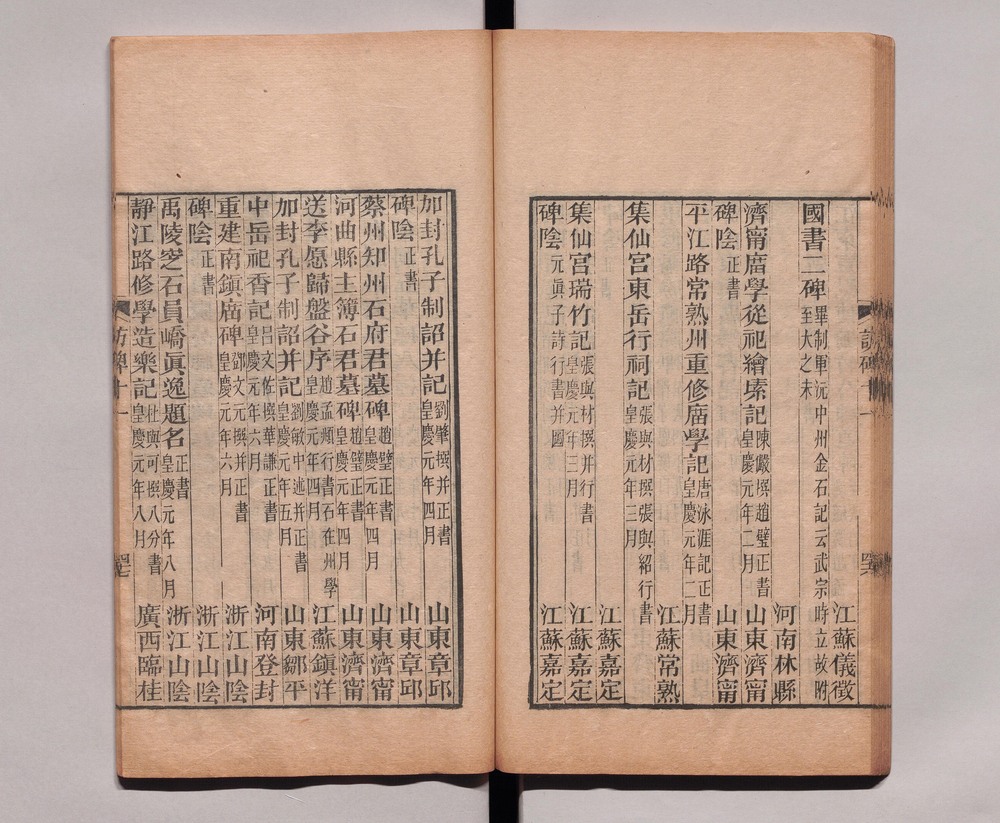 江蘇儀徵
國書二碑
畢制軍沅中州金石記云武宗時立故附
至大之末
河南林縣
濟甯庿學從祀繪塐記
陳嚴撰趙璧正書
皇慶元年二月
山東濟甯
碑陰
正書
山東濟甯
平江路常熟州重修庿學記
唐泳涯記正書
皇慶元年二月
江蘇常熟
集仙宮東岳行祠記
張與材撰張與紹行書
皇慶元年三月
江蘇嘉定
集仙宮瑞竹記
張與材撰并行書
皇慶元年三月
江蘇嘉定
碑陰
元眞子詩行書并圖
江蘇嘉定
加封孔子制詔并記
劉肇撰并正書
皇慶元年四月
山東章邱
碑陰
正書
山東章邱
蔡州知州石府君墓碑
趙璧正書
皇慶元年四月
山東濟甯
河曲縣主簿石君墓碑
趙璧正書
皇慶元年四月
山東濟甯
送李愿歸盤谷序
趙孟頫行書石在州學
皇慶元年四月
江蘇鎭洋
加封孔子制詔并記
劉敏中述并正書
皇慶元年五月
山東鄒平
中岳祀香記
呂文佐撰華謙正書
皇慶元年六月
河南登封
重建南鎭庿碑
鄧文元撰并正書
皇慶元年六月
浙江山陰
碑陰
正書
浙江山陰
禹陵窆石員嶠眞逸題名
正書
皇慶元年八月
浙江山陰
靜江路修學造樂記
杜與可撰八分書
皇慶元年八月
廣西臨桂